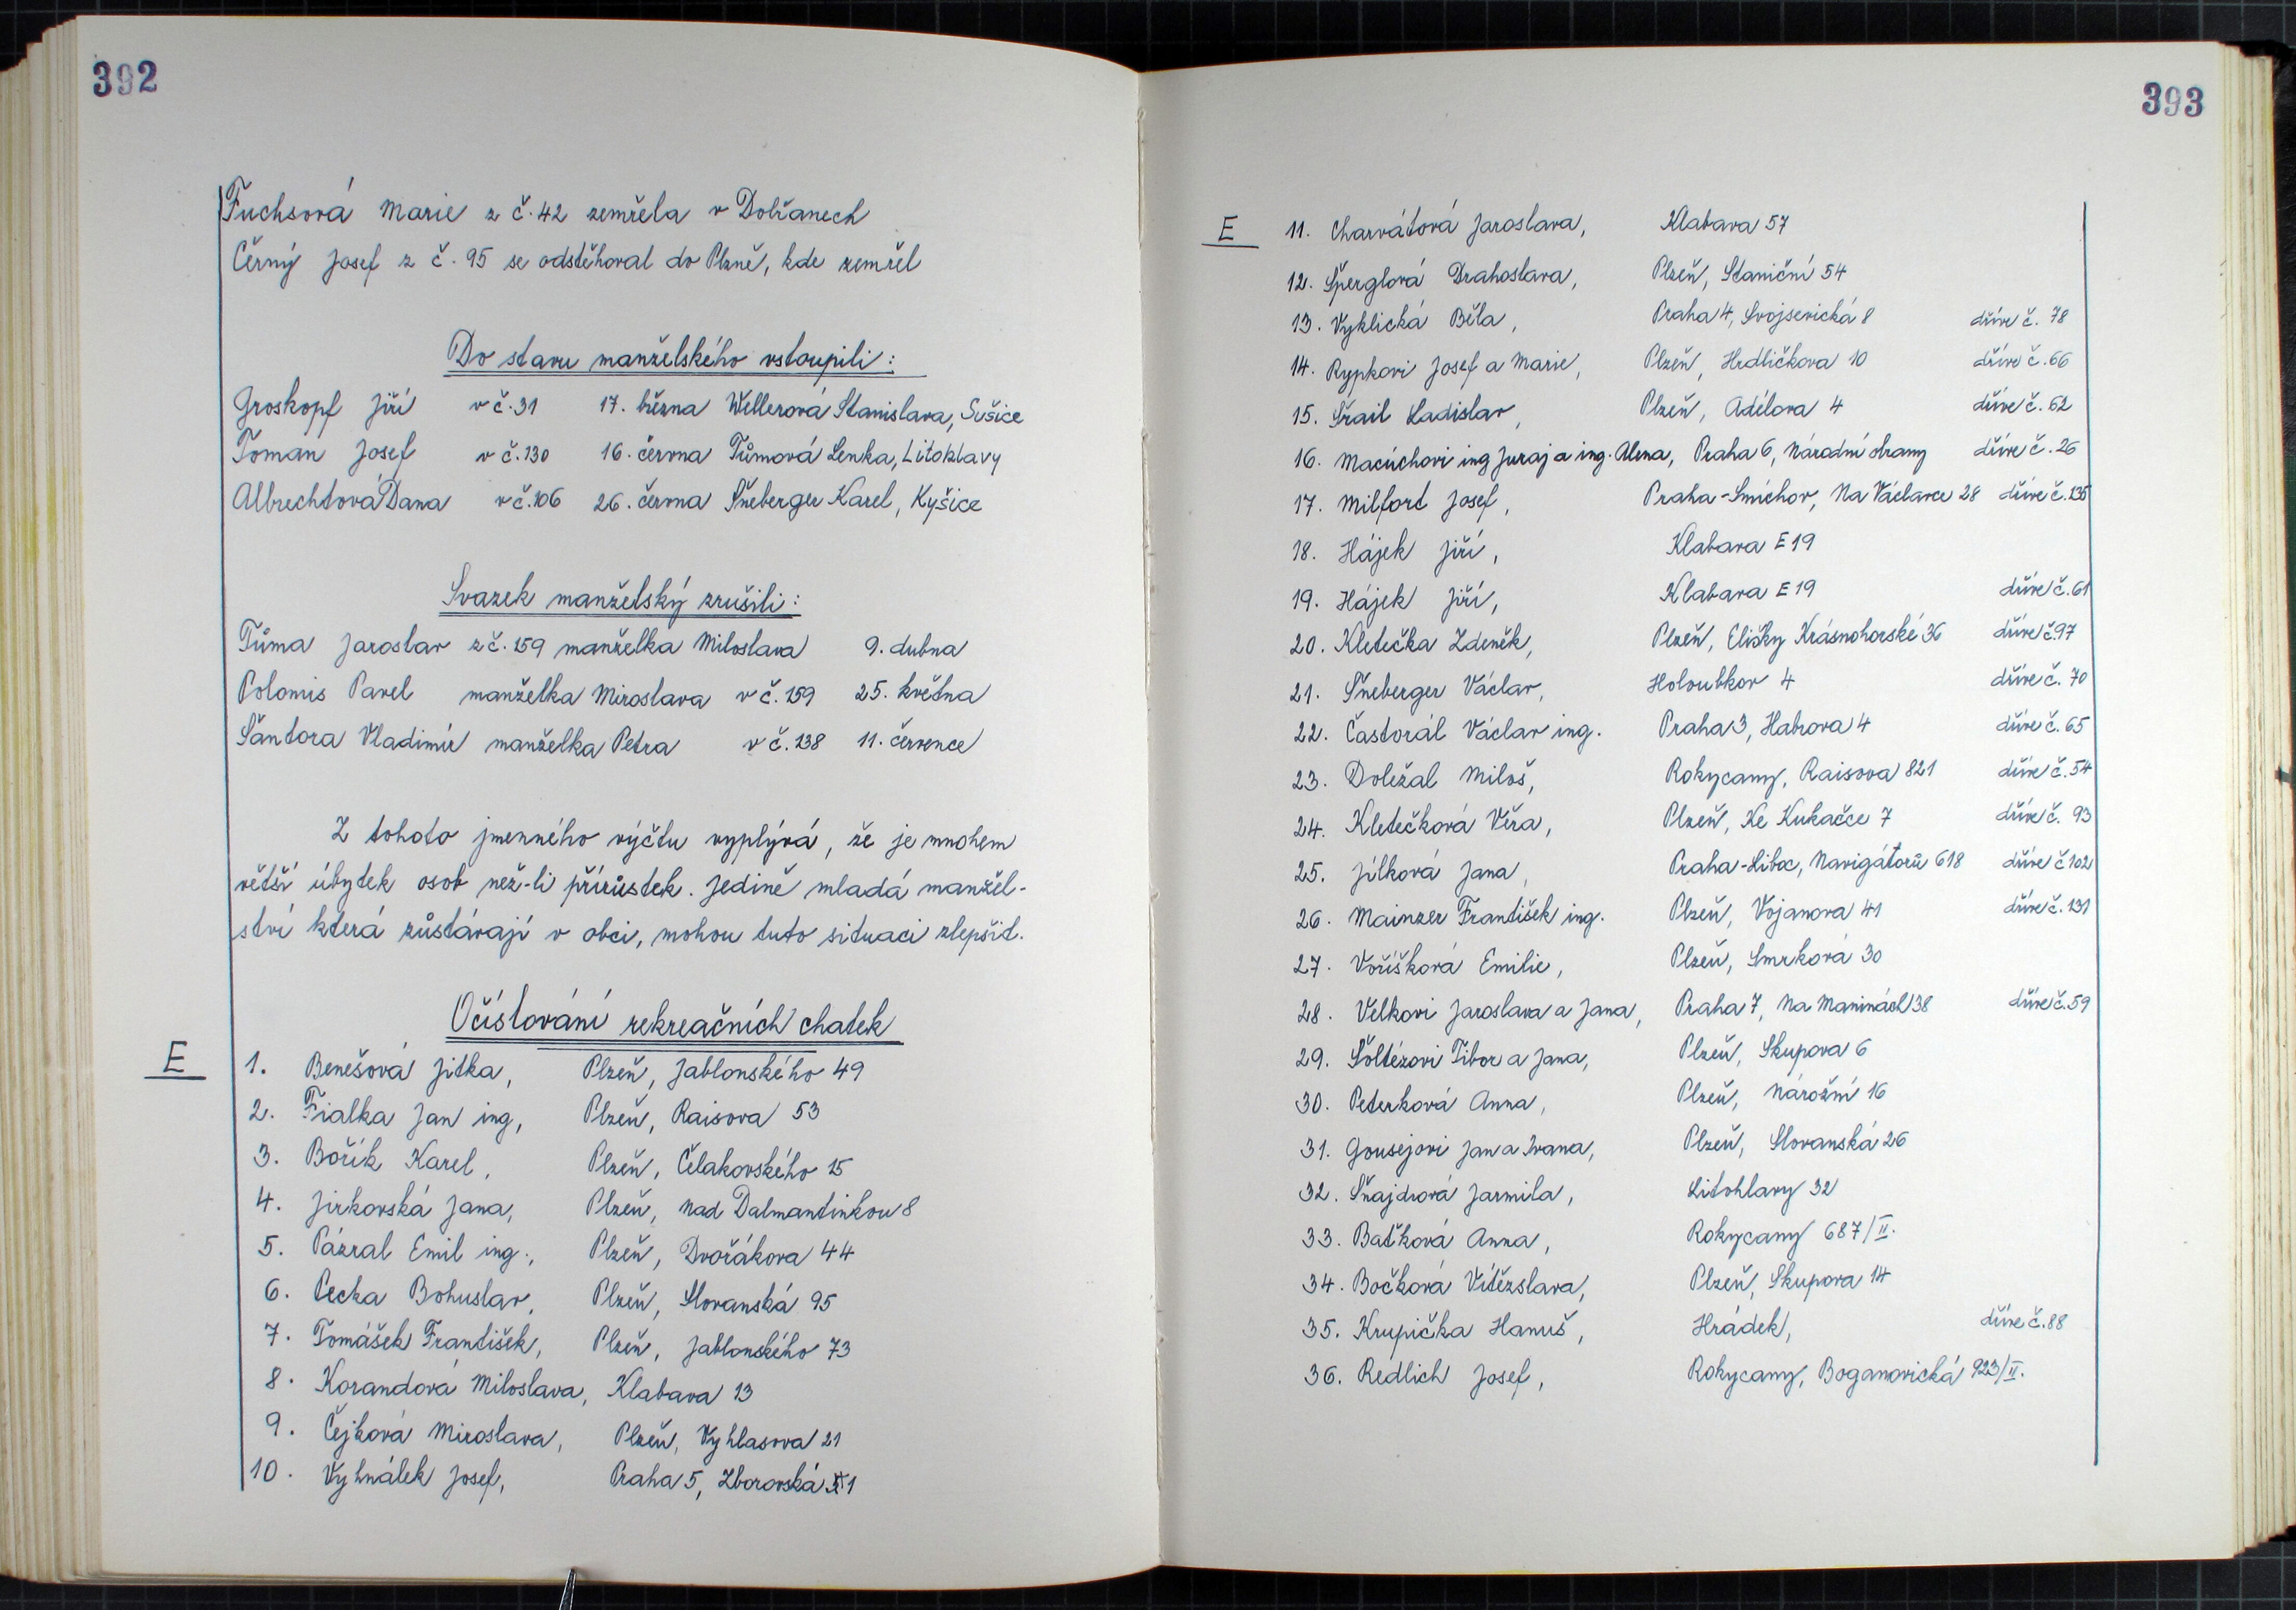 392
Fuchsová Marie z č. 42 zemřela v Dobřanech
Černý Josef z č. 95 se odstěhoval do Plzně, kde zemřel
Do stavu manželského vstoupili:
Groskopf Jiří v č. 31 17. března Wellerová Stanislava, Sušice
Toman Josef v č. 130 16. června Tůmová Lenka, Litohlavy
Albrechtová Dana v č. 106 26. června Šneberger Karel, Kyšice
Svazek manželský zrušili:
Tůma Jaroslav z č. 159 manželka Miloslava 9. dubna
Polomis Pavel manželka Miroslava v č. 159 25. května
Šantora Vladimír manželka Petra v č. 138 11. července
Z tohoto jmenného výčtu vyplývá, že je mnohem
větší úbytek osob než-li přírůstek. Jedině mladá manžel-
ství která zůstávají v obci, mohou tuto situaci zlepšit.
Očíslování rekreačních chatek
E 1. Benešová Jitka, Plzeň, Jablonského 49
2. Fialka Jan ing, Plzeň, Raisova 53
3. Bořík Karel, Plzeň, Čelakovského 15
4. Jirkovská Jana, Plzeň, Nad Dalmantinkou 8
5. Pázral Emil ing., Plzeň, Dvořákova 44
6. Pecka Bohuslav, Plzeň, Slovanská 95
7. Tomášek František, Plzeň, Jablonského 73
8. Korandová Miloslava, Klabava 13
9. Čejková Miroslava, Plzeň, Vyhlasova 21
10. Vyhnálek Josef, Praha 5, Zborovská
393
E 11. Charvátová Jaroslava, Klabava 57
12. Šperglová Drahoslava, Plzeň, Staniční 54
13. Vyklická Běla, Praha 4, Svojsevická 8 dříve č. 78
14. Rypkovi Josef a Marie, Plzeň, Hrdličkova 10 dříve č. 66
15. Šrail Ladislav, Plzeň, Adélova 4 dříve č. 62
16. Macúchovi ing Juraj a ing. Alena, Praha 6, Národní obrany dříve č. 26
17. Milfort Josef, Praha-Smíchov, Na Václavce 28 dříve č. 135
18. Hájek Jiří, Klabava E 19
19. Hájek Jiří, Klabava E 19 dříve č. 61
20. Kletečka Zdeněk, Plzeň, Elišky Krásnohorské 36 dříve č 97
21. Šneberger Václav, Holoubkov 4 dříve č. 70
22. Častorál Václav ing. Praha 3, Habrova 4 dříve č. 65
23. Doležal Miloš, Rokycany, Raisova 821 dříve č. 54
24. Kletečková Věra, Plzeň, Ke Kukačce 7 dříve č. 93
25. Jílková Jana, Praha-Liboc, Navigátorů 618 dříve č 102
26. Mainzer František ing. Plzeň, Vojanova 41 dříve č. 131
27. Voříšková Emilie, Plzeň, Smrková 30
28. Velkovi Jaroslava a Jana, Praha 7, Na Maninách 38 dříve č. 59
29. Šoltézovi Tibor a Jana, Plzeň, Skupova 6
30. Peterková Anna, Plzeň, Nárožní 16
31. Gousejovi Jan a Ivana, Plzeň, Slovanská 26
32. Šnajdrová Jarmila, Litohlavy 32
33. Baťková Anna, Rokycany 687/II.
34. Bočková Vítězslava, Plzeň, Skupova 14
35. Krupička Hanuš, Hrádek, dříve č. 88
36. Redlich Josef, Rokycany, Boganovická 923/II.